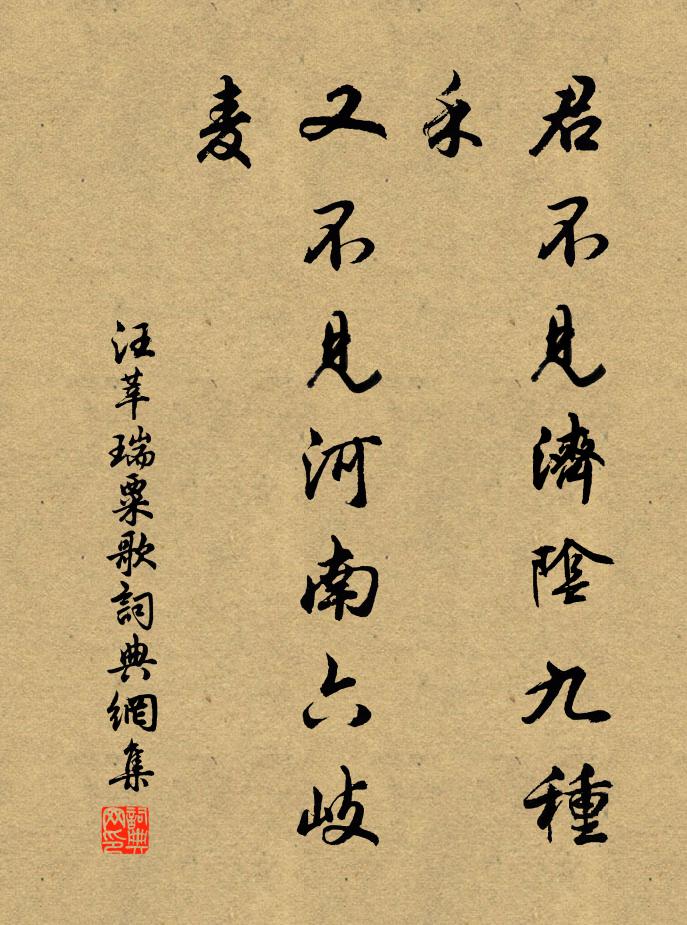 君不見濟陰九種
禾
又不見河南六岐
麦
汪莘瑞粟歌詞典網集
詞典网印